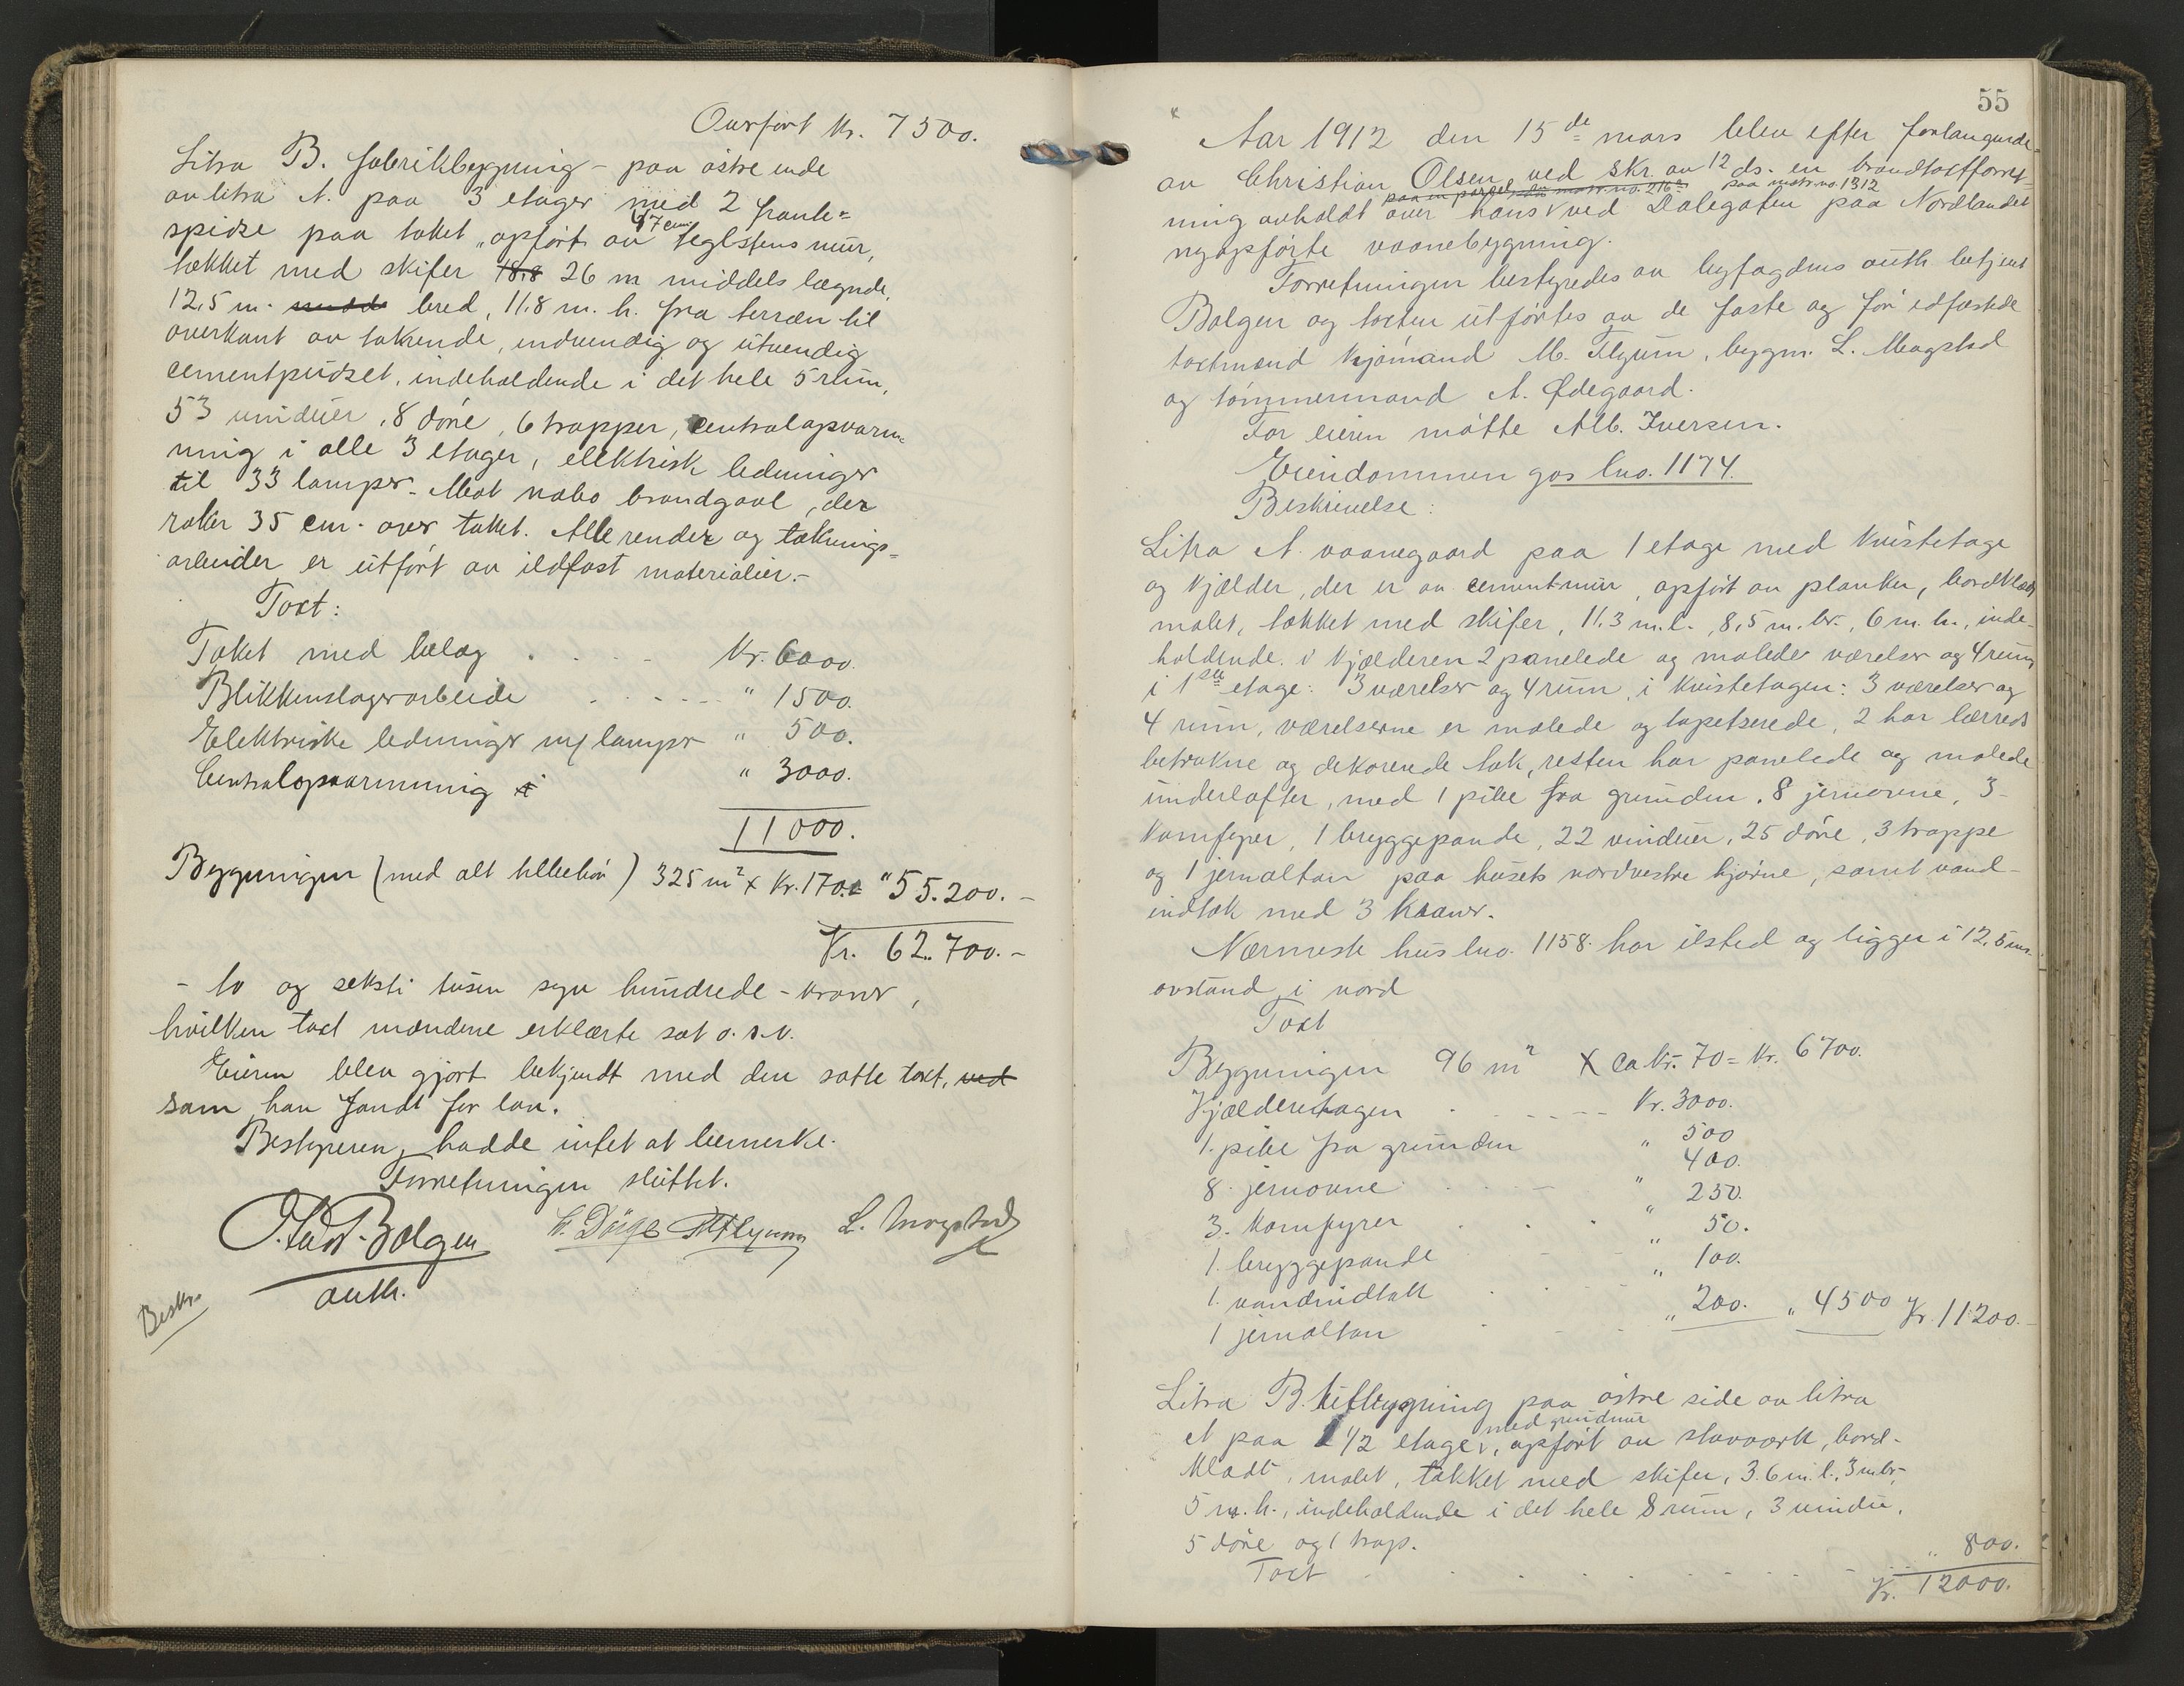 Overført kr. 7500.
Litra B. fabrikbygning - paa østre ende
av litra A. paa 3 etager med 2 fronte=
spidse paa taket, opført av 47 cm. teglstens mur,
tækket med skifer 18.8 26 m middels længde,
12,5 m. bred, 11.8 m. h. fra terræn til
overkant av takrende, indvendig og utvendig
cementpudset, indeholdende i det hele 5 rum,
53 vinduer, 8 døre, 6 trapper, centralopvarm-
ning i alle 3 etager, elektrisk ledninger
til 33 lamper. Mot nabo brandgavl, der
raker 35 cm. over taket. Alle render og tæknings=
arbeider er utført av ildfast materialier.-
Taxt:
Taket med belæg . . . . Kr. 6000.
Blikkenslagerarbeide . . . . " 1500.
Elektriske ledninger m/ lamper " 500.
Centralopvarmning " 3000.
11000.
Bygningen (med alt tilbehør) 325 m² x Kr. 170.= " 55.200.-
Kr. 62.700.-
- to og seksti tusen syv hundrede - kroner,
hvilken taxt mændene erklærte sat o.s.v.
Eieren blev gjort bekjendt med den satte taxt, ved
som han fandt for lav.
Bestyreren hadde intet at bemerke.
Forretningen sluttet.
Bolgen M Flyum L. Magstad
auth.
Beskr.
55
Aar 1912 den 15de mars blev efter forlangende
av Christian Olsen ved skr. av 12 ds. en brandtaxtforret-
paa en parcel av matr. no. 216a paa matr. no. 1312
ning avholdt over hans ved Dalegaten paa Nordlandet
nyopførte vaanebygning.
Forretningen bestyredes av byfogdens auth. betjent
Bolgen og taxten utførtes av de faste og før edfæstede
taxtmænd kjømand M. Flyum, bygm. L. Magstad
og tømmermand A. Ødegaard.
For eieren møtte Alb. Iversen.
Eiendommen gis lno. 1174.
Beskrivelse:
Litra A. vaanegaard paa 1 etage med kvistetage
og kjælder, der er av cementmur, opført av planker, bordklædt
malet, tækket med skifer, 11.3 m. l., 8,5 m. br., 6 m. h., inde-
holdende i kjælderen 2 panelede og malede værelser og 4 rum,
i 1ste etage: 3 værelser og 4 rum, i kvistetagen: 3 værelser og
4 rum, værelserne er malede og tapetserede, 2 har lærreds
betrukne og dekorerede tak, resten har panelede og malede
underlofter, med 1 pibe fra grunden, 8 jernovne, 3-
komfyrer, 1 bryggepande, 22 vinduer, 25 døre, 3 trappe
og 1 jernaltan paa husets nordvestre hjørne, samt vand-
indtak med 3 kraner.
Nærmeste hus lno. 1158 har ilsted og ligger i 12,5 ms.
avstand i nord
Taxt
Bygningen 96 m² x ca kr. 70 = kr. 6700.
Kjælderetagen . . . . Kr. 3000.
1. pibe fra grunden " 500
8. jernovne " 400.
3. komfyrer " 250.
1. bryggepande " 50.
1. vandindtak " 100.
1 jernaltan " 200. " 4500 Kr. 11200.-
Litra B. tilbygning paa østre side av litra
A paa 1 1/2 etage, med grundmur, opført av stavværk, bord-
klædt, malet, tækket med skifer, 3.6 m. l., 3 m br.,
5 m. h., indeholdende i det hele 8 rum, 3 vindu,
5 døre og 1 trap.
Taxt . . . . " 800.
Kr. 12000.